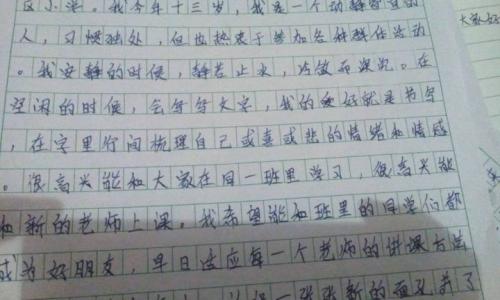 我今年十三岁,我是一个动静皆宜的
人,习惯独处,但也热衷于参加各种集体活动
。我安静的时候,静若止水,内敛而深沉。在
空闲的时候,会写写文字,我的爱好就是书写
,在字里行间梳理自己或喜或悲的情绪和情感
。很高兴能和大家在同一班里学习,很高兴能
和新的老师上课。我希望能和班里的同学们都
成为好朋友,早日适应每一个老师的讲课方法
一张张新的面孔
大家好